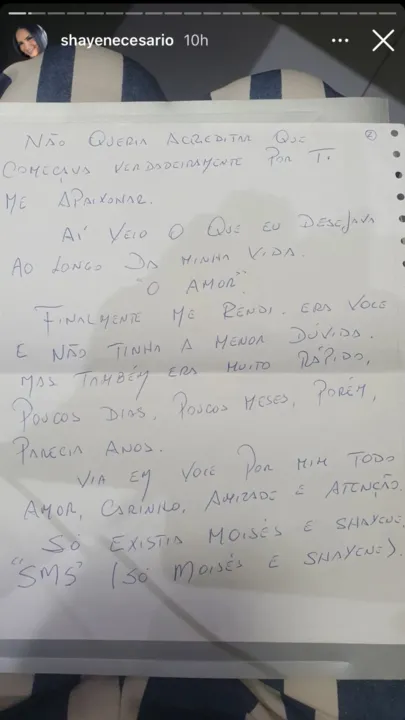 shayenecesario 10h
2
NÃO QUERIA ACREDITAR QUE
COMEÇAVA VERDADEIRAMENTE POR TI
ME APAIXONAR.
AÍ VEIO O QUE EU DESEJAVA
AO LONGO DA MINHA VIDA.
"O AMOR".
FINALMENTE ME RENDI. ERA VOCE
E NÃO TINHA A MENOR DÚVIDA.
MAS TAMBÉM ERA MUITO RÁPIDO,
POUCOS DIAS, POUCOS MESES, PORÉM,
PARECIA ANOS.
VIA EM VOCE POR MIM TODO
AMOR, CARINHO, AMIZADE E ATENÇÃO.
SÓ EXISTIA MOISÉS E SHAYENE,
"SMS" (SÓ MOISÉS E SHAYENE).